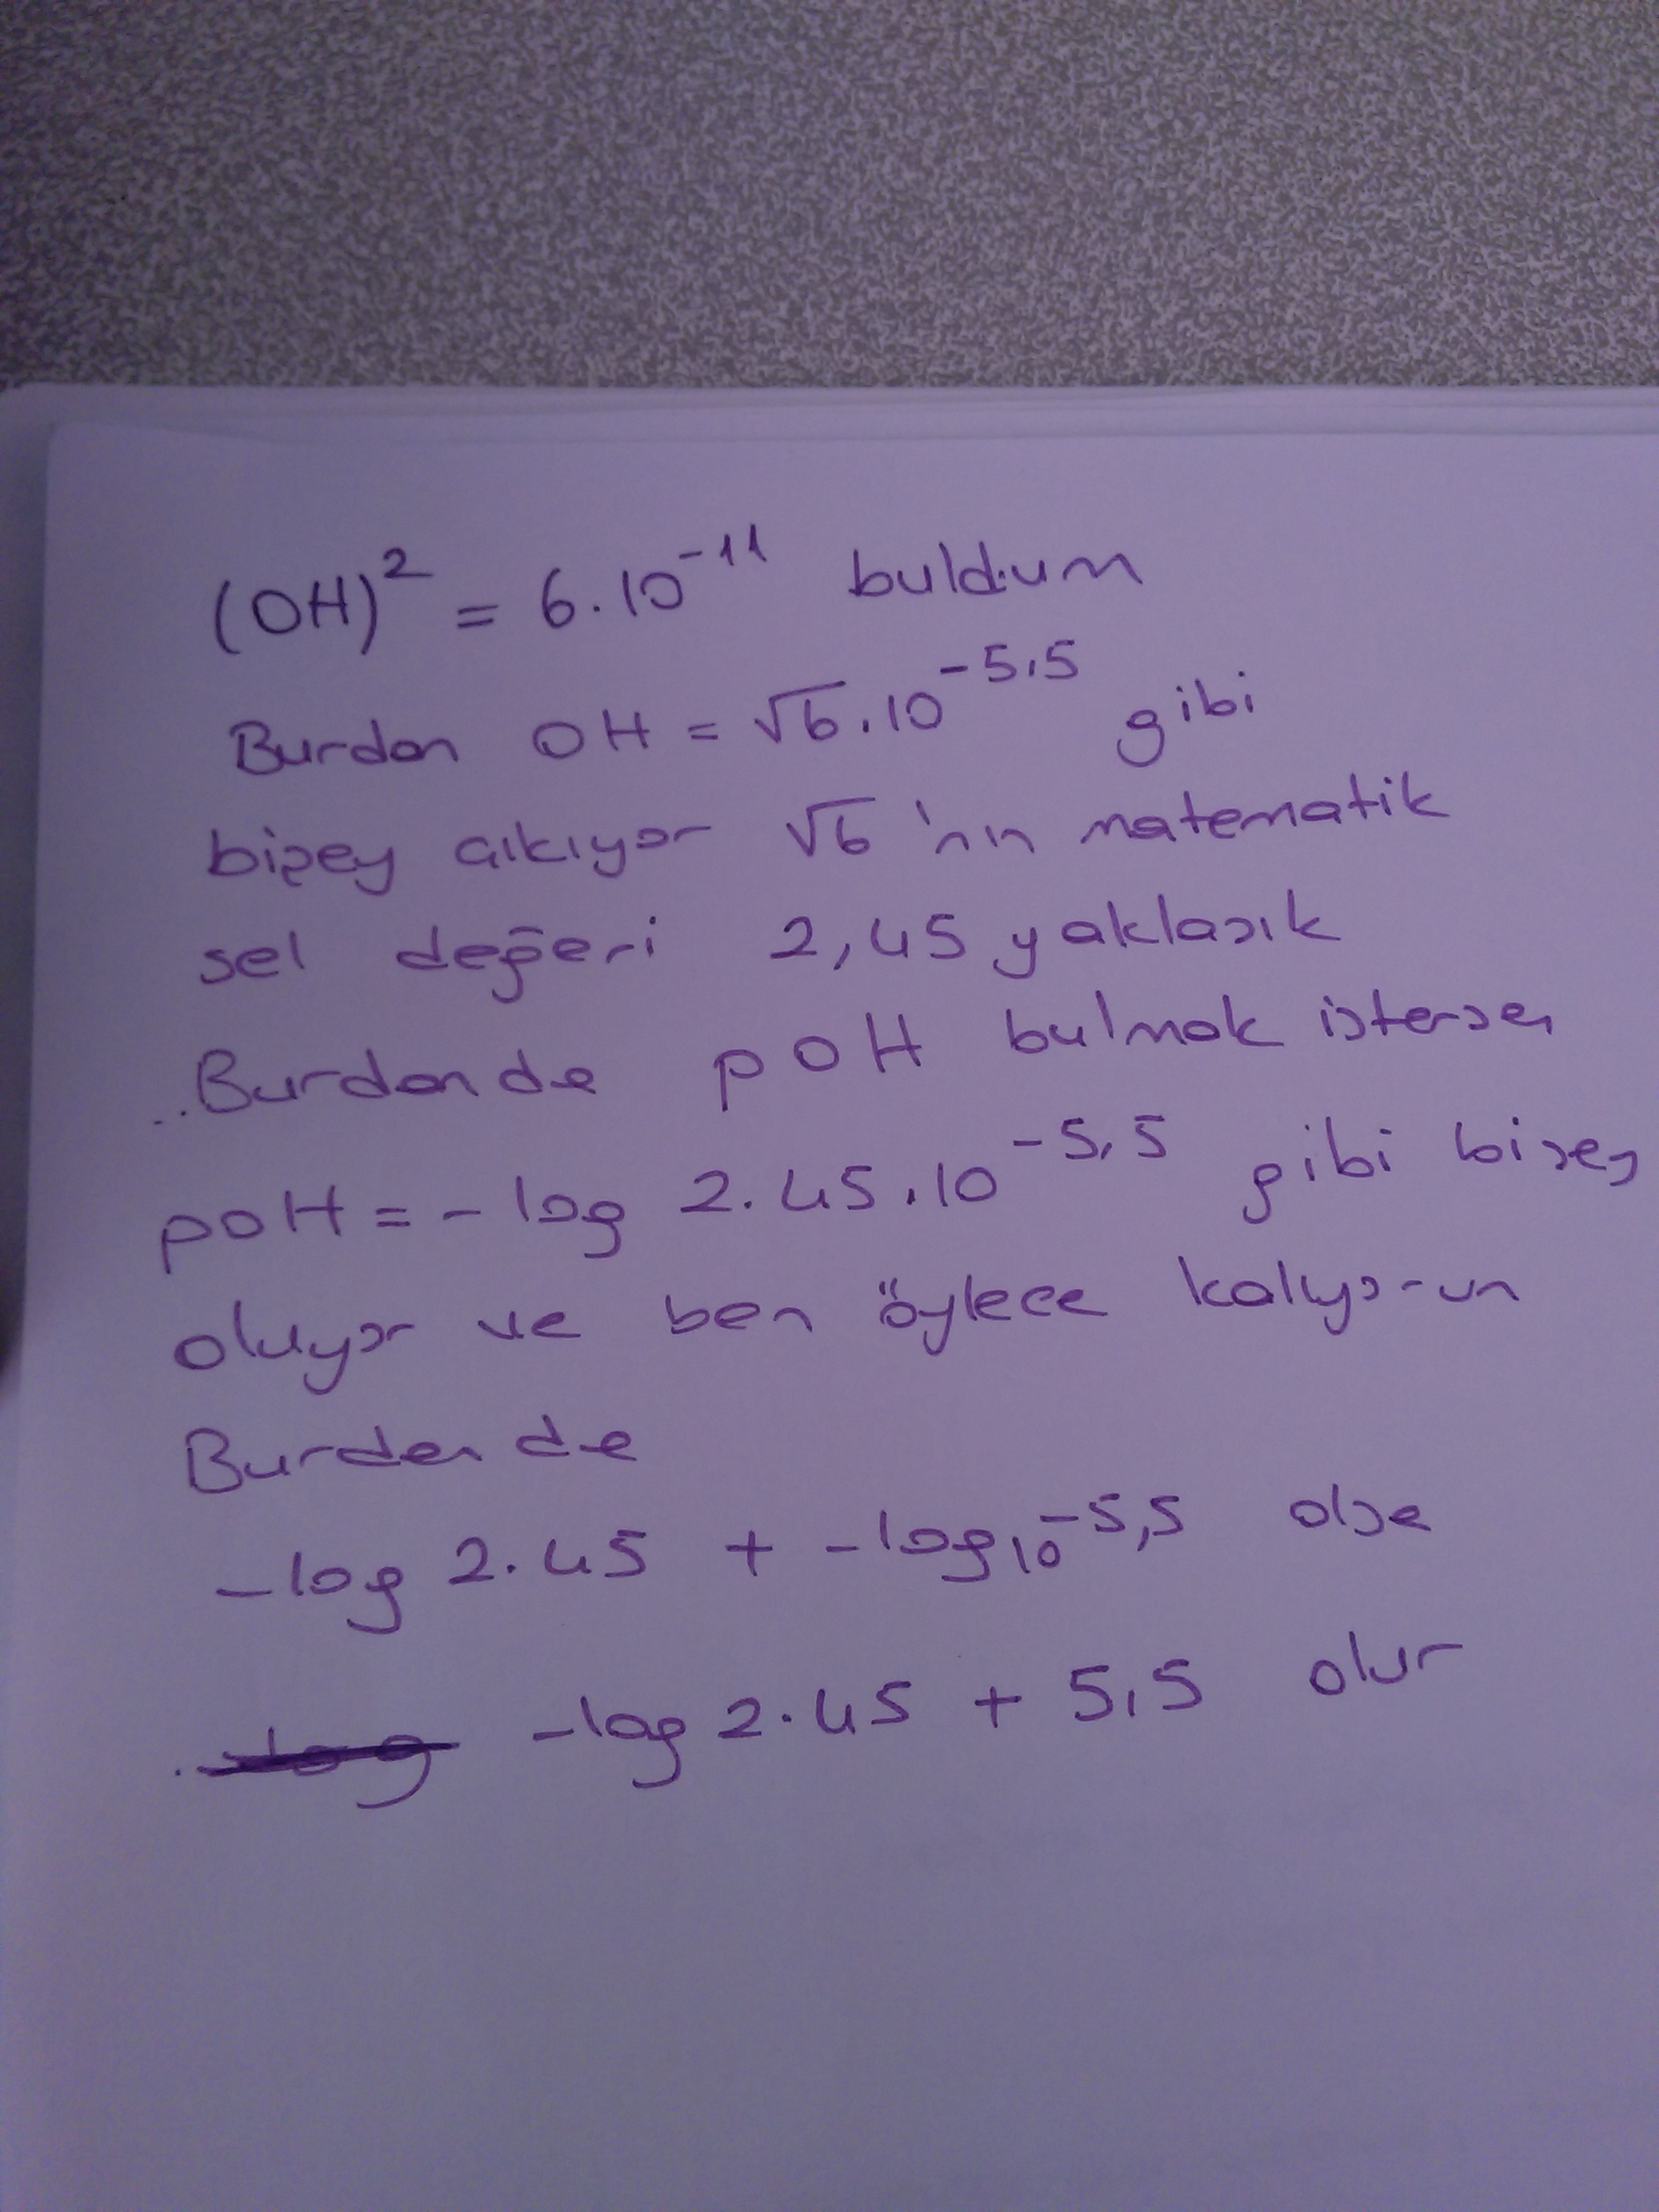 (OH)² = 6.10⁻¹¹ buldum
Burdan OH = √6.10⁻⁵,⁵ gibi
bişey çıkıyor √6'nın matematik
sel değeri 2,45 yaklaşık
Burdan de pOH bulmak istersen
pOH = - log 2.45.10⁻⁵,⁵ gibi bişey
oluyor ve ben öylece kalıyorum
Burdan de
-log 2.45 + -log10⁻⁵,⁵ olsa
-log 2.45 + 5,5 olur